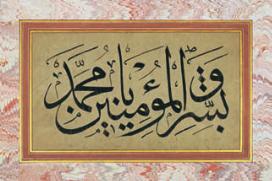 وبشر المؤمنين يا محمد